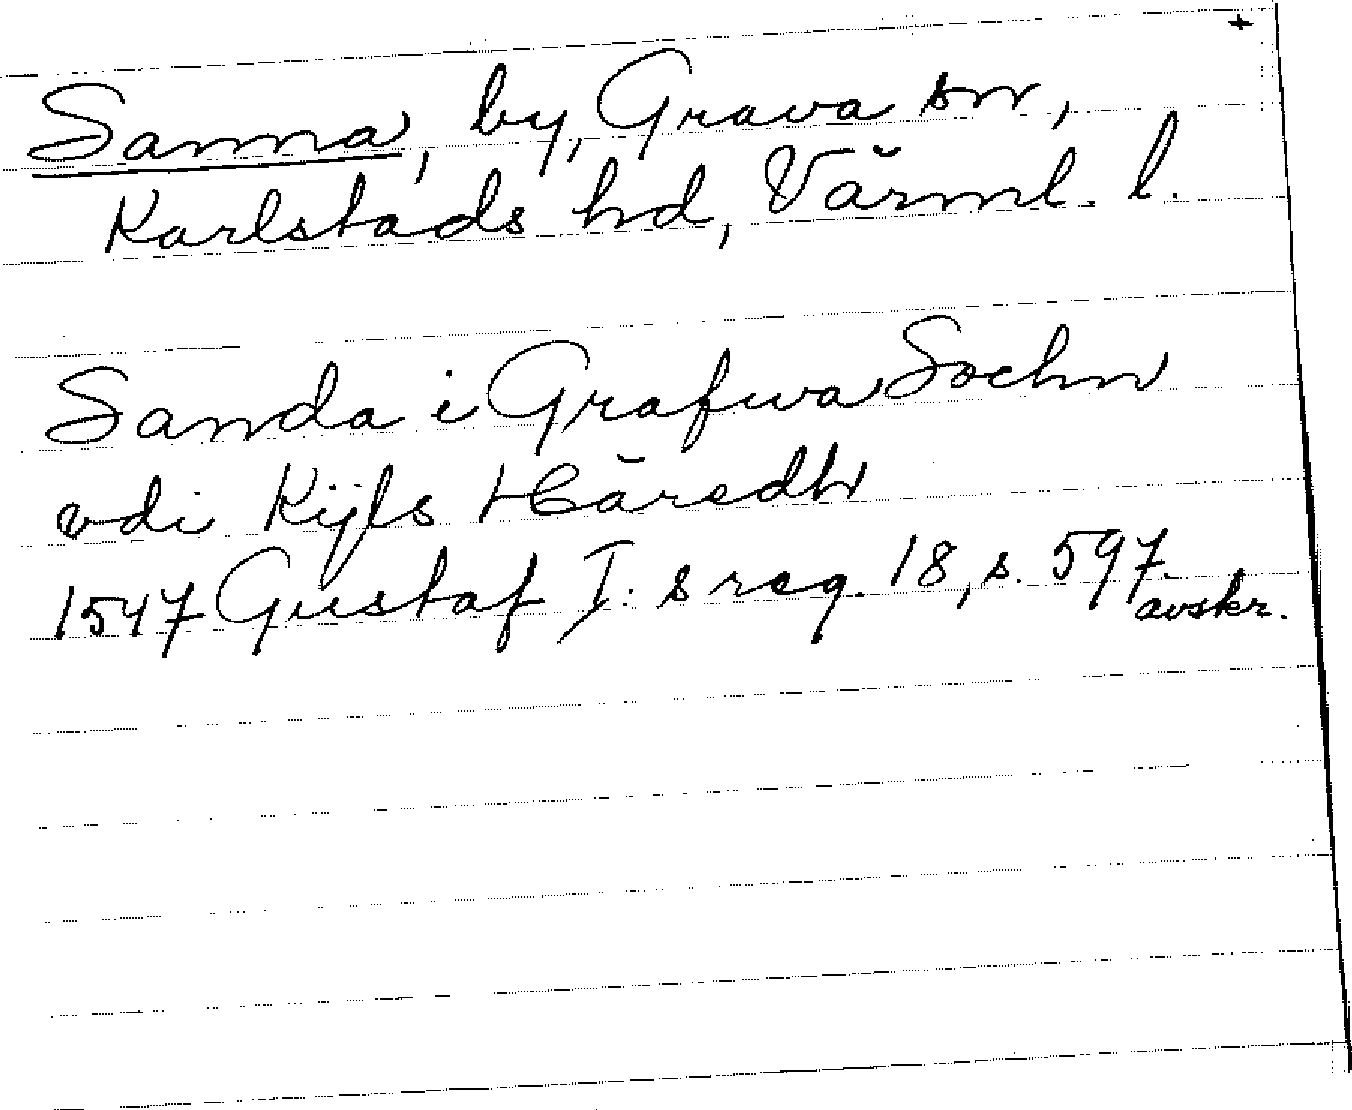 +
Sanna, by, Grava sn,
Karlstads hd, Värml. l.
Sanda i Grafwa Sochn
vdi Kijls Häredh
1547 Gustaf I:s reg. 18, s. 597
avskr.